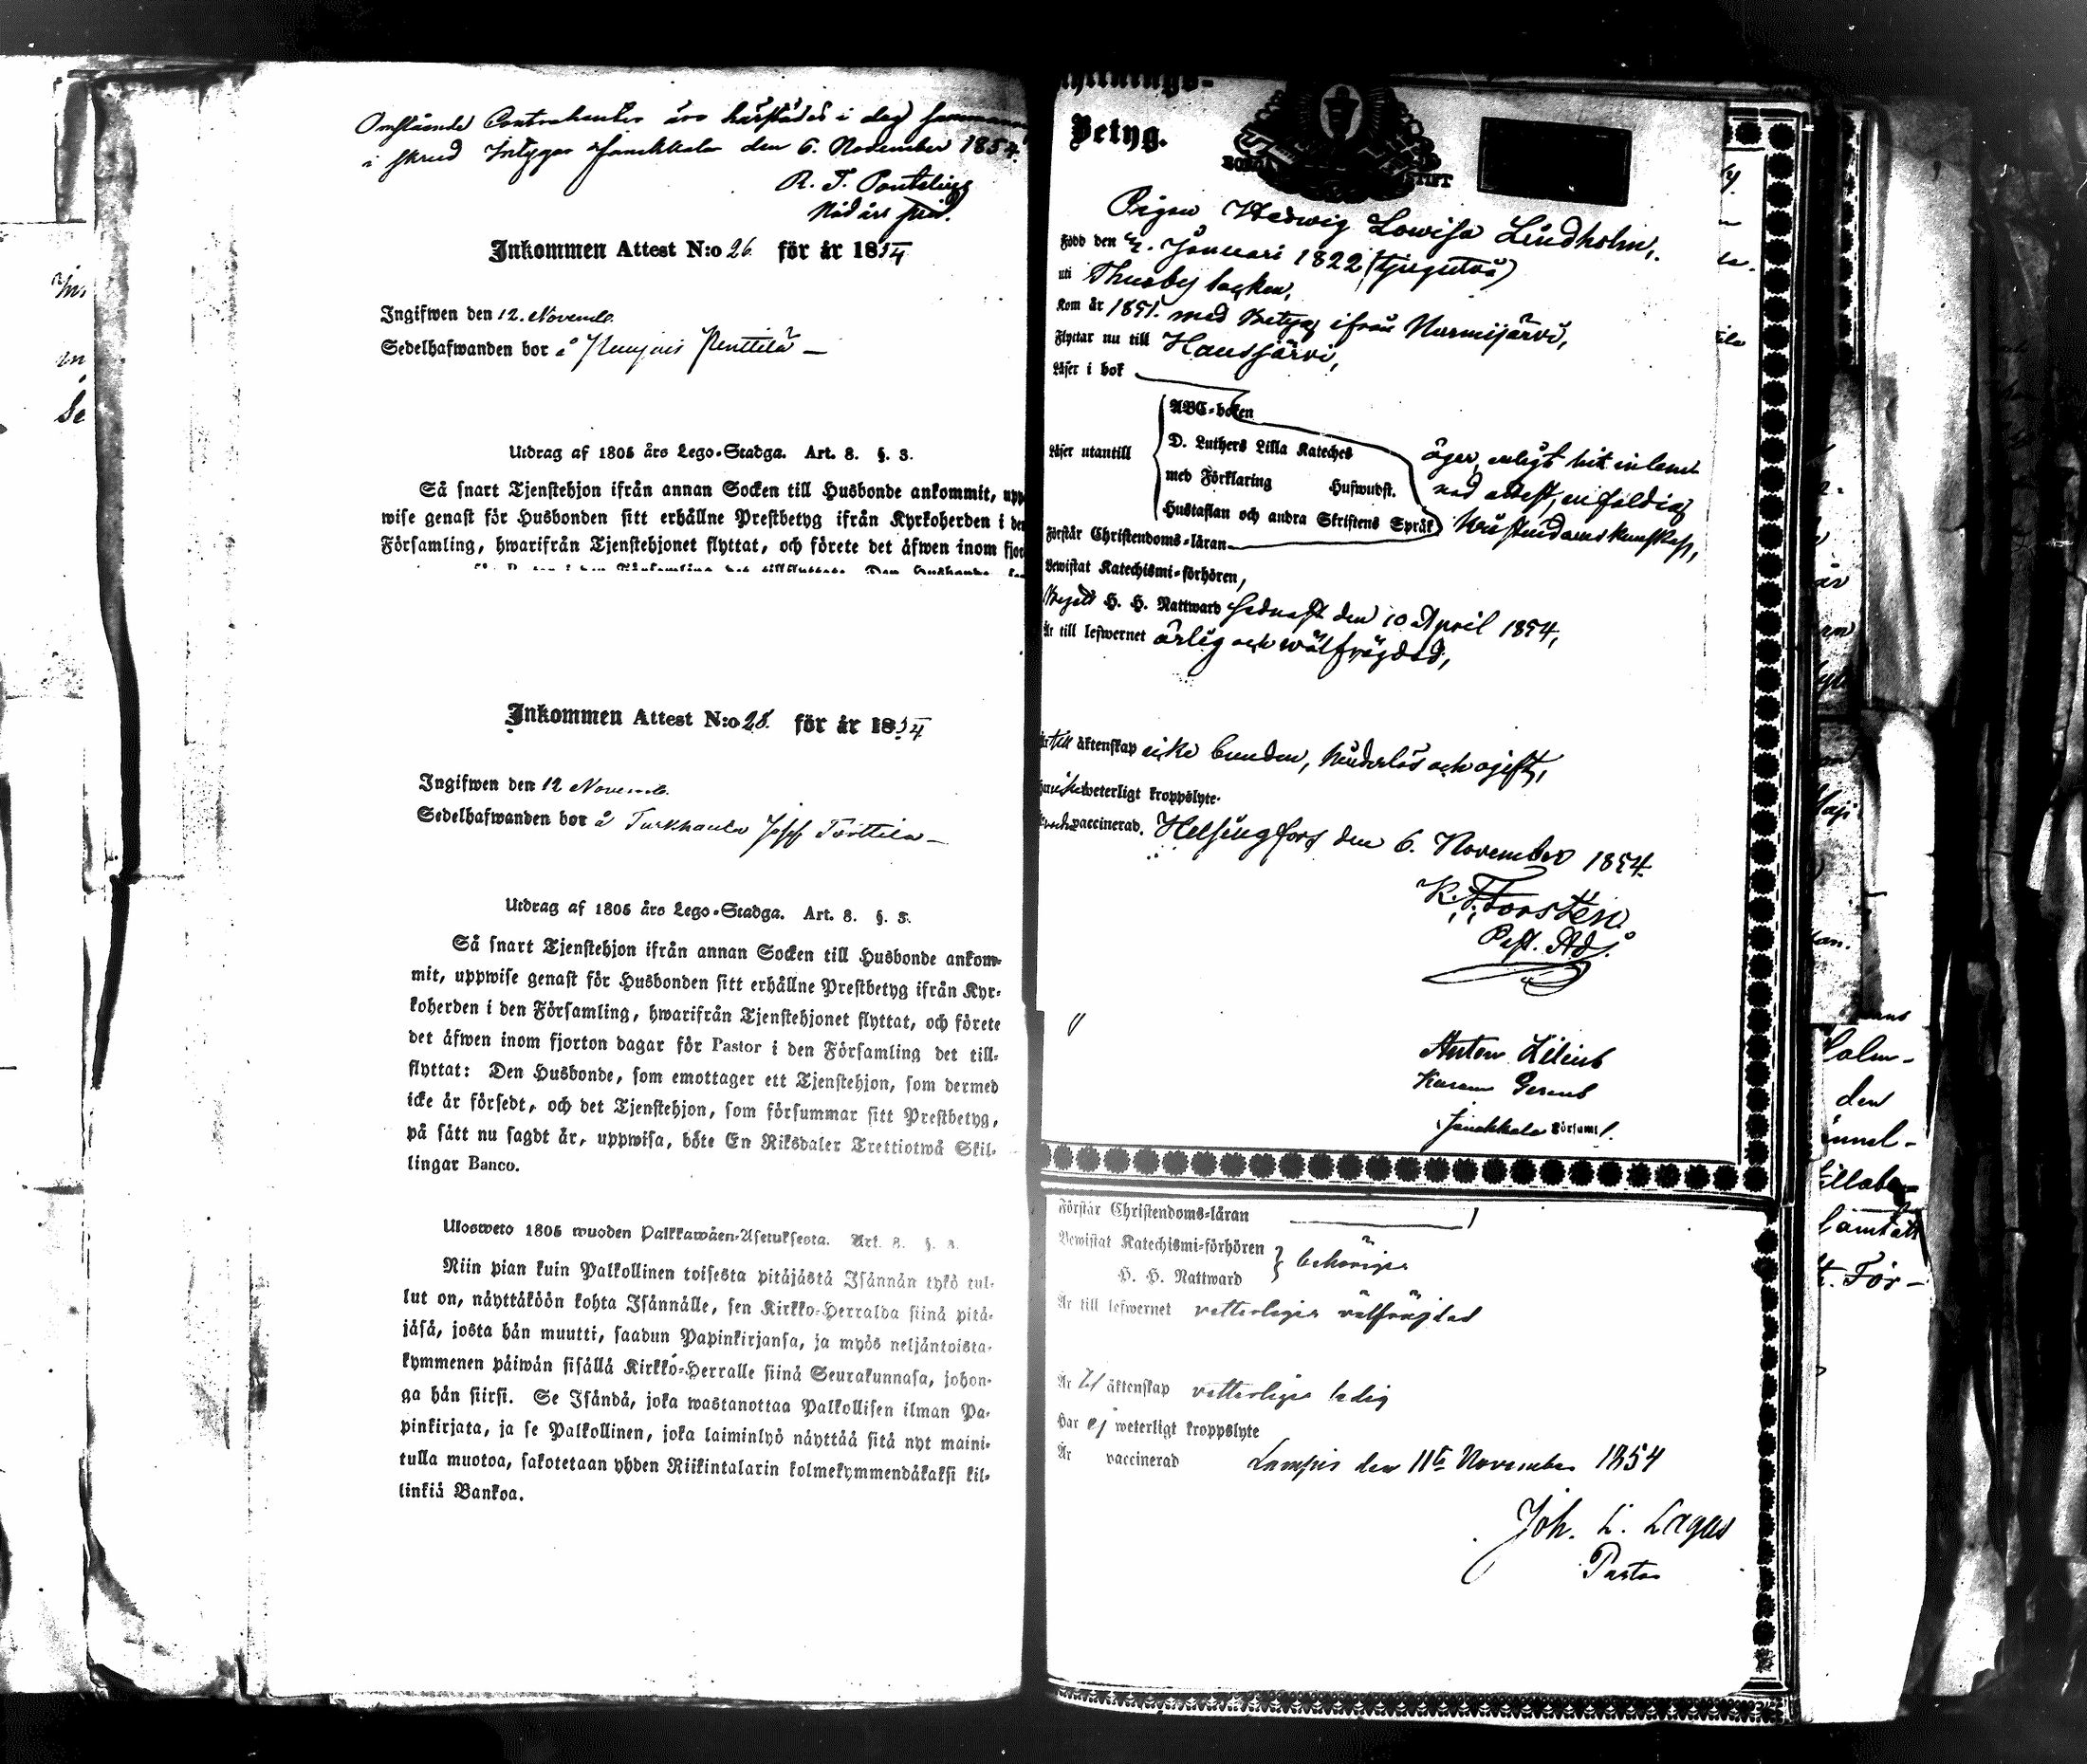 Omstående Contrahenter äro härstädes i dag
i skrud Intygar Janakkala den 6. November 1854.
R. T. Pontelius
Nådårs pred.
Inkommen Attest N:o 26 för år 1854
Ingifwen den 12. Novemb.
Sedelhafwanden bor å Penttilä —
Utdrag af 1805 års Lego-Stadga. Art. 8. §. 3.
Så snart Tjenstehjon ifrån annan Socken till Husbonde ankommit, upp
wise genast för Husbonden sitt erhållne Prestbetyg ifrån Kyrkoherden i den
Församling, hwarifrån Tjenstehjonet flyttat, och förete det äfwen inom fjor
Inkommen Attest N:o 28. för år 1854
Ingifwen den 12 Novemb.
Sedelhafwanden bor å Turkhauta —
Utdrag af 1805 års Lego-Stadga. Art. 8. §. 3.
Så snart Tjenstehjon ifrån annan Socken till Husbonde ankom-
mit, uppwise genast för Husbonden sitt erhållne Prestbetyg ifrån Kyr-
koherden i den Församling, hwarifrån Tjenstehjonet flyttat, och förete
det äfwen inom fjorton dagar för Pastor i den Församling det till-
flyttat: Den Husbonde, som emottager ett Tjenstehjon, som dermed
icke är försedt, och det Tjenstehjon, som försummar sitt Prestbetyg,
på sätt nu sagdt är, uppwisa, böte En Riksdaler Trettiotwå Skil-
lingar Banco.
Ulosweto 1805 wuoden Palkkawäen-Asetuksesta. Art. 8. §. 3.
Niin pian kuin Palkollinen toisesta pitäjästä Isännän tykö tul-
lut on, näyttäköön kohta Isännälle, sen Kirkko-Herralda siinä pitä-
jäsä, josta hän muutti, saadun Papinkirjansa, ja myös neljäntoista-
kymmenen päiwän sisällä Kirkko-Herralle siinä Seurakunnasa, johon-
ga hän siirsi. Se Isändä, joka wastanottaa Palkollisen ilman Pa-
pinkirjata, ja se Palkollinen, joka laiminlyö näyttää sitä nyt maini-
tulla muotoa, sakotetaan yhden Riikintalarin kolmekymmendäkaksi kil-
linkiä Bankoa.
Betyg.
BORGÅ STIFT
Pigan Hedwig Lowisa Lindholm,
Född den 2. Januari 1822 (tjugutvå)
uti Thusby socken,
Kom år 1851. med Betyg ifrån Nurmijärvi,
Flyttar nu till Hausjärvi,
Läser i bok
ABC-boken
Läser utantill
D. Luthers Lilla Kateches
med Förklaring Huswudst.
Hustaflan och andra Skriftens Språk
äger, enligt hit inlem-
nad attest, enfaldig
kristendomskunskap,
Förstår Christendoms-läran
Bewistat Katechismi-förhören,
Begått H. H. Nattward sednast den 10 April 1854,
Är till lefwernet ärlig och wälfräjdad,
till äktenskap icke bunden, huderlös och ogift,
weterligt kroppslyte.
vaccinerad. Helsingfors den 6. November 1854.
K. F. Forstén
Past. Adj.
Anton Lilius
Janakkala Församl.
Förstår Christendoms-läran
Bewistat Katechismi-förhören
H. H. Nattward
} behörigen
Är till lefwernet vetterligen välfräjdad
Är till äktenskap vetterligen ledig
Har ej weterligt kroppslyte
Är vaccinerad Lampis den 11te November 1854
Joh. L. Lagus
Pastor